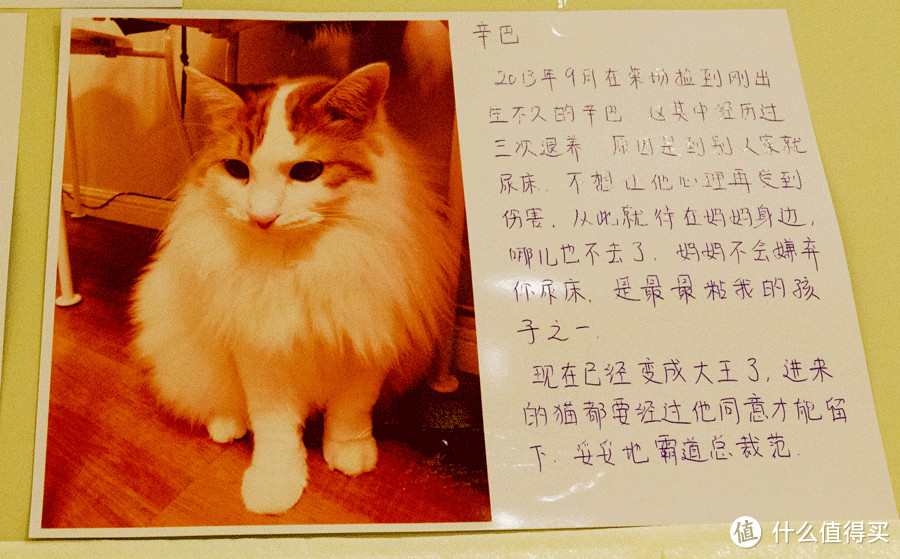 辛巴
2013年9月在菜场捡到刚出
生不久的辛巴 这其中经历过
三次退养 原因是到别人家就
尿床。不想让他心理再受到
伤害，从此就待在妈妈身边，
哪儿也不去了，妈妈不会嫌弃
你尿床，是最最粘我的孩
子之一.
现在已经变成大王了，进来
的猫都要经过他同意才能留
下.妥妥地霸道总裁范.
值 什么值得买